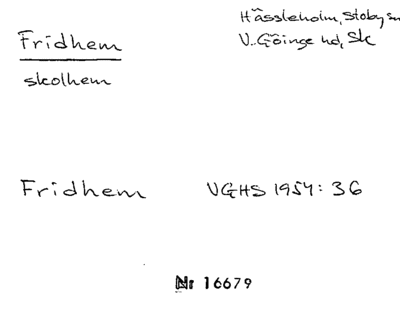 Hässleholm, Stoby sn
Fridhem
V. Göinge hd, Sk
skolhem
Fridhem VGHS 1954: 36
Nr 16679